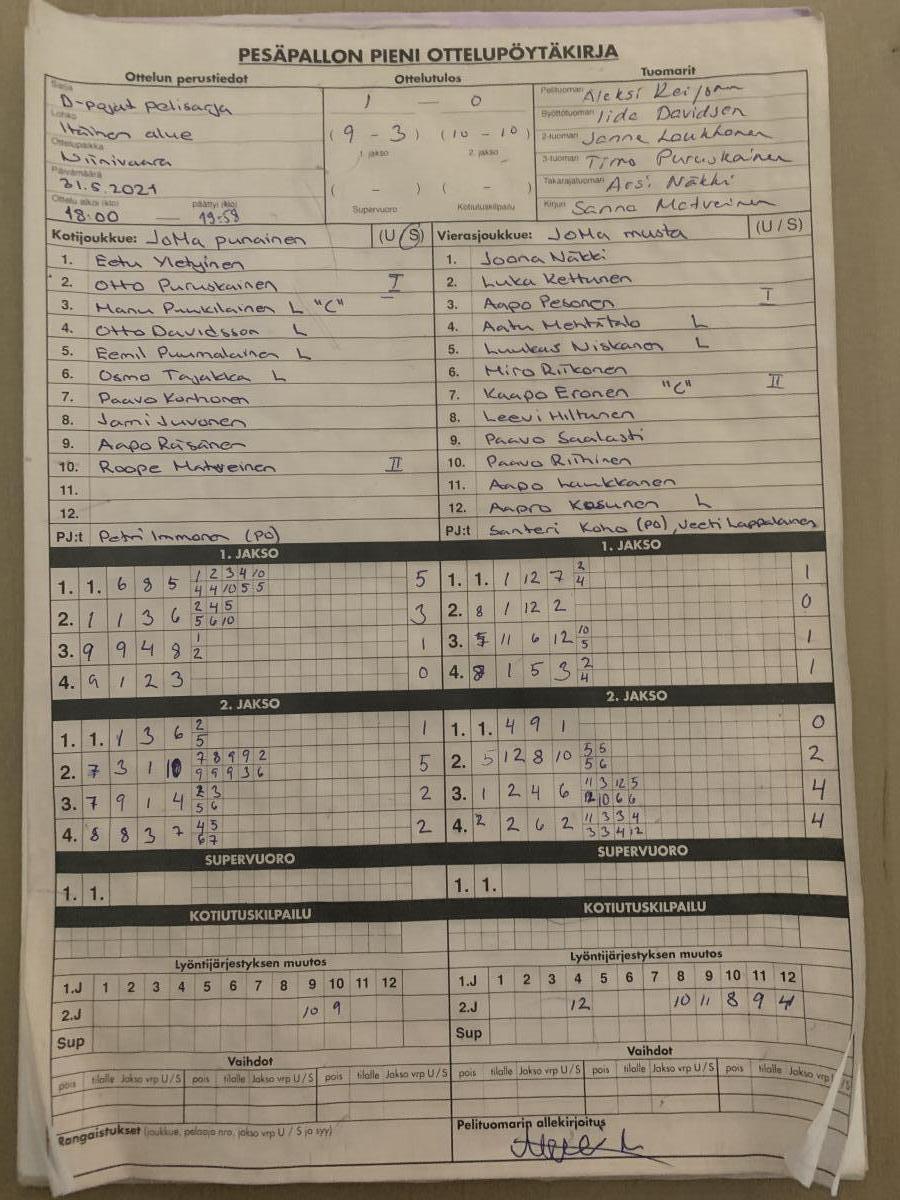 PESÄPALLON PIENI OTTELUPÖYTÄKIRJA
Ottelun perustiedot Ottelutulos Tuomarit
Sarja D-pojat pelisarja
Lohko Itäinen alue
Ottelupaikka Niinivaara
Päivämäärä 31.5.2021
Ottelu alkoi (klo) päättyi (klo)
18:00 — 19:59
1 — 0
(9 - 3) (10 - 10)
1. jakso 2. jakso
( - ) ( - )
Supervuoro Kotiutuskilpailu
Pelituomari Aleksi
Syöttötuomari Iida Davidsen
2-tuomari Janne Loukkonen
3-tuomari Timo Puruskainen
Takarajatuomari Arsi Näkki
Kirjuri Sanna Matveinen
Kotijoukkue: JoMa punainen (U/S)
1. Eetu Yletyinen
2. Otto Puruskainen I
3. Manu Puukilainen L "C"
4. Otto Davidsson L
5. Eemil Puumalainen L
6. Osmo Tajakka L
7. Paavo Korhonen
8. Jami Juvonen
9. Aapo Räsänen
10. Roope Matveinen II
11.
12.
PJ:t Petri Immonen (PO)
Vierasjoukkue: JoMa musta (U/S)
1. Joona Näkki
2. Luka Kettunen
3. Aapo Pesonen I
4. Aatu Mehtätalo L
5. Luukas Niskanen L
6. Miro Riikonen
7. Kaapo Eronen "C" II
8. Leevi Hiltunen
9. Paavo Saalasti
10. Paavo Riihinen
11. Aapo Laukkanen
12. Aapro Kosunen L
PJ:t Santeri Koho (PO), Veeti Lappalainen
1. JAKSO
1. 1. 6 8 5 1 2 3 4 10 5
4 4 10 5 5
2. 1 1 3 6 2 4 5 3
5 6 10
3. 9 9 4 8 1 1
2
4. 9 1 2 3 0
1. JAKSO
1. 1. 1 12 7 2 1
4
2. 8 1 12 2 0
3. 5 11 6 12 10 1
5
4. 8 1 5 3 2 1
4
2. JAKSO
1. 1. 1 3 6 2 1
5
2. 7 3 1 10 7 8 9 9 2 5
9 9 9 3 6
3. 7 9 1 4 2 3 2
5 6
4. 8 8 3 7 4 5 2
6 7
2. JAKSO
1. 1. 4 9 1 0
2. 5 12 8 10 5 5 2
5 6
3. 1 2 4 6 11 3 12 5 4
12 10 6 6
4. 2 2 6 2 11 3 3 4 4
3 3 4 12
SUPERVUORO
1. 1.
SUPERVUORO
1. 1.
KOTIUTUSKILPAILU
KOTIUTUSKILPAILU
Lyöntijärjestyksen muutos
1.J 1 2 3 4 5 6 7 8 9 10 11 12
2.J 10 9
Sup
Lyöntijärjestyksen muutos
1.J 1 2 3 4 5 6 7 8 9 10 11 12
2.J 12 10 11 8 9 4
Sup
Vaihdot
pois tilalle Jakso vrp U/S pois tilalle Jakso vrp U/S pois tilalle Jakso vrp U/S
Vaihdot
pois tilalle Jakso vrp U/S pois tilalle Jakso vrp U/S pois tilalle Jakso vrp U/S
Rangaistukset (joukkue, pelaaja nro, jakso vrp U / S ja syy)
Pelituomarin allekirjoitus